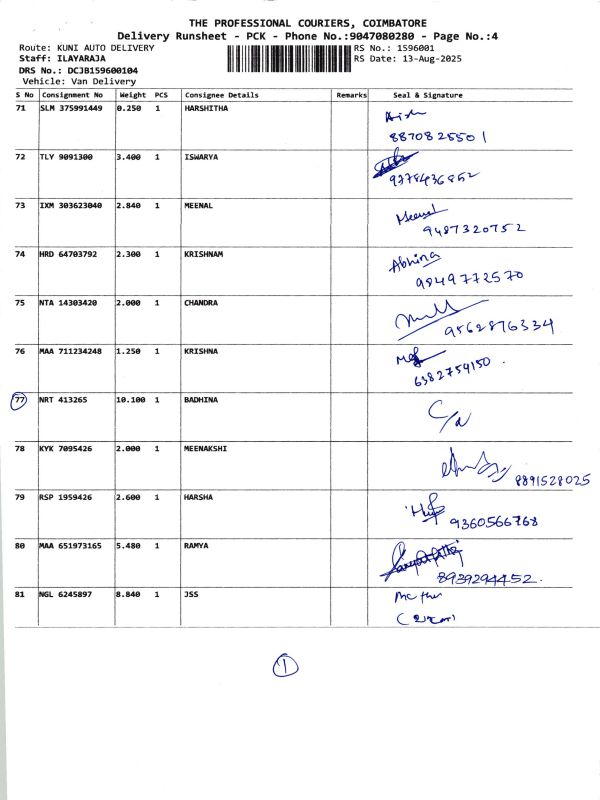 THE PROFESSIONAL COURIERS, COIMBATORE
Delivery Runsheet - PCK - Phone No.:9047080280 - Page No.:4
Route: KUNI AUTO DELIVERY RS No.: 1596001
Staff: ILAYARAJA RS Date: 13-Aug-2025
DRS No.: DCJB159600104
Vehicle: Van Delivery
S No Consignment No Weight PCS Consignee Details Remarks Seal & Signature
71 SLM 375991449 0.250 1 HARSHITHA
8870825501
72 TLY 9091300 3.400 1 ISWARYA
9778436852
73 IXM 303623040 2.840 1 MEENAL Meenal
9487320752
74 HRD 64703792 2.300 1 KRISHNAM Abhina
9849772570
75 NTA 14303420 2.000 1 CHANDRA
9562876334
76 MAA 711234248 1.250 1 KRISHNA
6382759150.
77 NRT 413265 10.100 1 BADHINA
C/a
78 KYK 7095426 2.000 1 MEENAKSHI
8891528025
79 RSP 1959426 2.600 1 HARSHA
9360566768
80 MAA 651973165 5.480 1 RAMYA
8939294452.
81 NGL 6245897 8.840 1 JSS
1